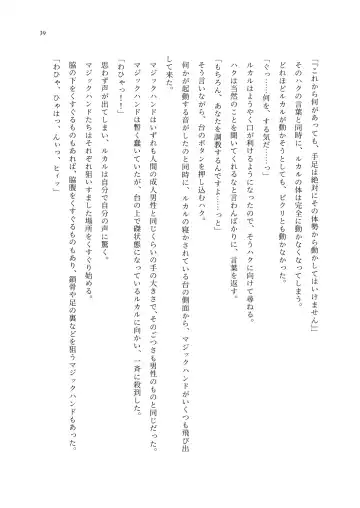 『これから何があっても、手足は絶対にその体勢から動かしてはいけません』」
そのハクの言葉と同時に、ルカルの体は完全に動かなくなってしまう。
どれほどルカルが動かそうとしても、ピクリとも動かなかった。
「ぐっ……何を、する気だ……っ」
ルカルはようやく口が利けるようになったのか、そうハクに向けて尋ねる。
ハクは当然のことを聞いてくれるなと言わんばかりに、言葉を返す。
「もちろん、あなたを調教するんですよ……っと」
そう言いながら、台のボタンを押し込むハク。
何かが起動する音がしたのと同時に、ルカルの寝かされている台の側面から、マジックハンドがいくつも飛び出
して来た。
マジックハンドはいずれも人間の成人男性と同じくらいの手の大きさで、そのごつさも男性のものと同じだった。
マジックハンドは暫く蠢いていたが、台の上で磔状態になっているルカルに向かい、一斉に殺到した。
「わひゃっ!!」
思わず声が出てしまい、ルカルは自分で自分の声に驚く。
マジックハンドたちはそれぞれ狙いすました場所をくすぐり始める。
脇の下をくすぐるものもあれば、脇腹をくすぐるものもあり、鎖骨や足の裏などを狙うマジックハンドもあった。
「わひゃ、ひゃはっ、んいっ、ヒィッ」
39